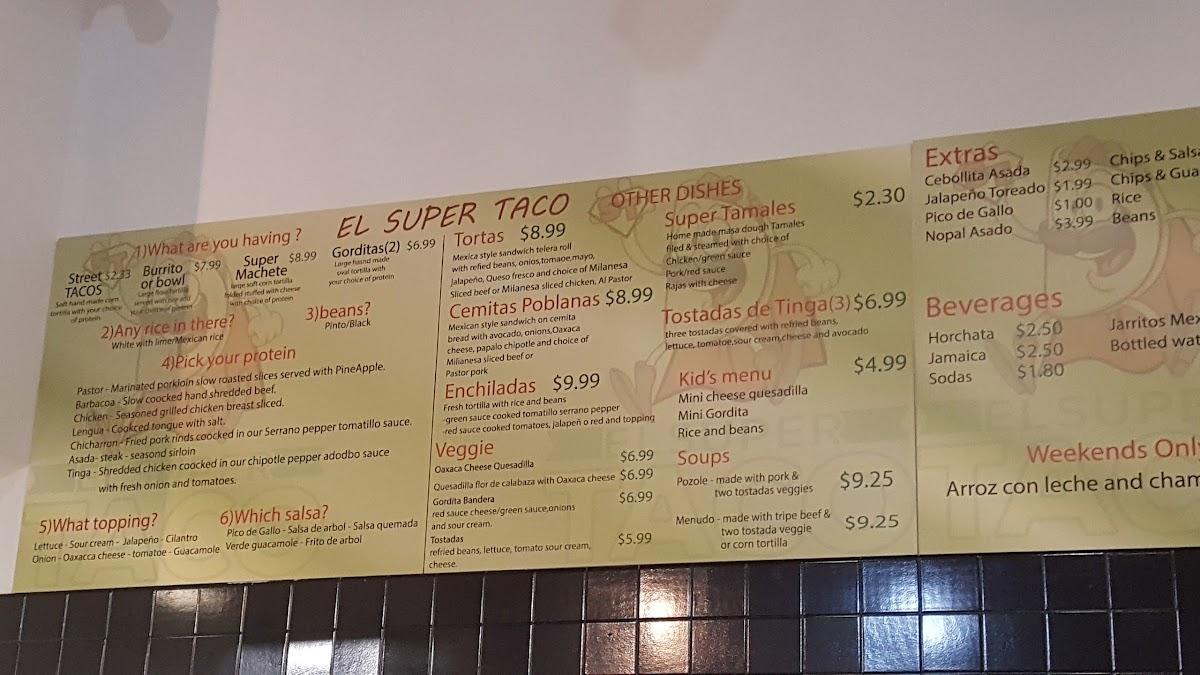 EL SUPER TACO
1)What are you having ?
Street $2.33
TACOS
Soft hand made corn
tortilla with your choice
of protein
Burrito $7.99
or bowl
Large flour tortilla
served with rice and
your choice of protein
Super $8.99
Machete
large soft corn tortilla
folded stuffed with cheese
with choice of protein
Gorditas(2) $6.99
Large haind made
oval tortilla with
your choice of protein
2)Any rice in there?
White with lime/Mexican rice
3)beans?
Pinto/Black
4)Pick your protein
Pastor - Marinated porkloin slow roasted slices served with PineApple.
Barbacoa - Slow coocked hand shredded beef.
Chicken - Seasoned grilled chicken breast sliced.
Lengua - Cookced tongue with salt.
Chicharron - Fried pork rinds coocked in our Serrano pepper tomatillo sauce.
Asada- steak - seasond sirloin
Tinga - Shredded chicken coocked in our chipotle pepper adodbo sauce
with fresh onion and tomatoes.
5)What topping?
Lettuce - Sour cream - Jalapeño - Cilantro
Onion - Oaxacca cheese - tomatoe - Guacamole
6)Which salsa?
Pico de Gallo - Salsa de arbol - Salsa quemada
Verde guacamole - Frito de arbol
Tortas $8.99
Mexica style sandwich telera roll
with refied beans, onios,tomaoe,mayo,
Jalapeño, Queso fresco and choice of Milanesa
Sliced beef or Milanesa sliced chicken, Al Pastor
Cemitas Poblanas $8.99
Mexican style sandwich on cemita
bread with avocado, onions,Oaxaca
cheese, papalo chipotle and choice of
Milianesa sliced beef or
Pastor pork
Enchiladas $9.99
Fresh tortilla with rice and beans
-green sauce cooked tomatillo serrano pepper
-red sauce cooked tomatoes, jalapeñ o red and topping
Veggie
Oaxaca Cheese Quesadilla $6.99
Quesadilla flor de calabaza with Oaxaca cheese $6.99
Gordita Bandera $6.99
red sauce cheese/green sauce,onions
and sour cream.
Tostadas $5.99
refried beans, lettuce, tomato sour cream,
cheese.
OTHER DISHES
Super Tamales $2.30
Home made masa dough Tamales
filed & steamed with choice of
Chicken/green sauce
Pork/red sauce
Rajas with cheese
Tostadas de Tinga(3) $6.99
three tostadas covered with refried beans,
lettuce, tomatoe,sour cream,cheese and avocado
Kid's menu $4.99
Mini cheese quesadilla
Mini Gordita
Rice and beans
Soups
Pozole - made with pork & $9.25
two tostadas veggies
Menudo - made with tripe beef & $9.25
two tostada veggie
or corn tortilla
Extras
Cebollita Asada $2.99
Jalapeño Toreado $1.99
Pico de Gallo $1.00
Nopal Asado $3.99
Chips & Salsa
Chips & Gua
Rice
Beans
Beverages
Horchata $2.50
Jamaica $2.50
Sodas $1.80
Jarritos Mex
Bottled wat
Weekends Only
Arroz con leche and cham